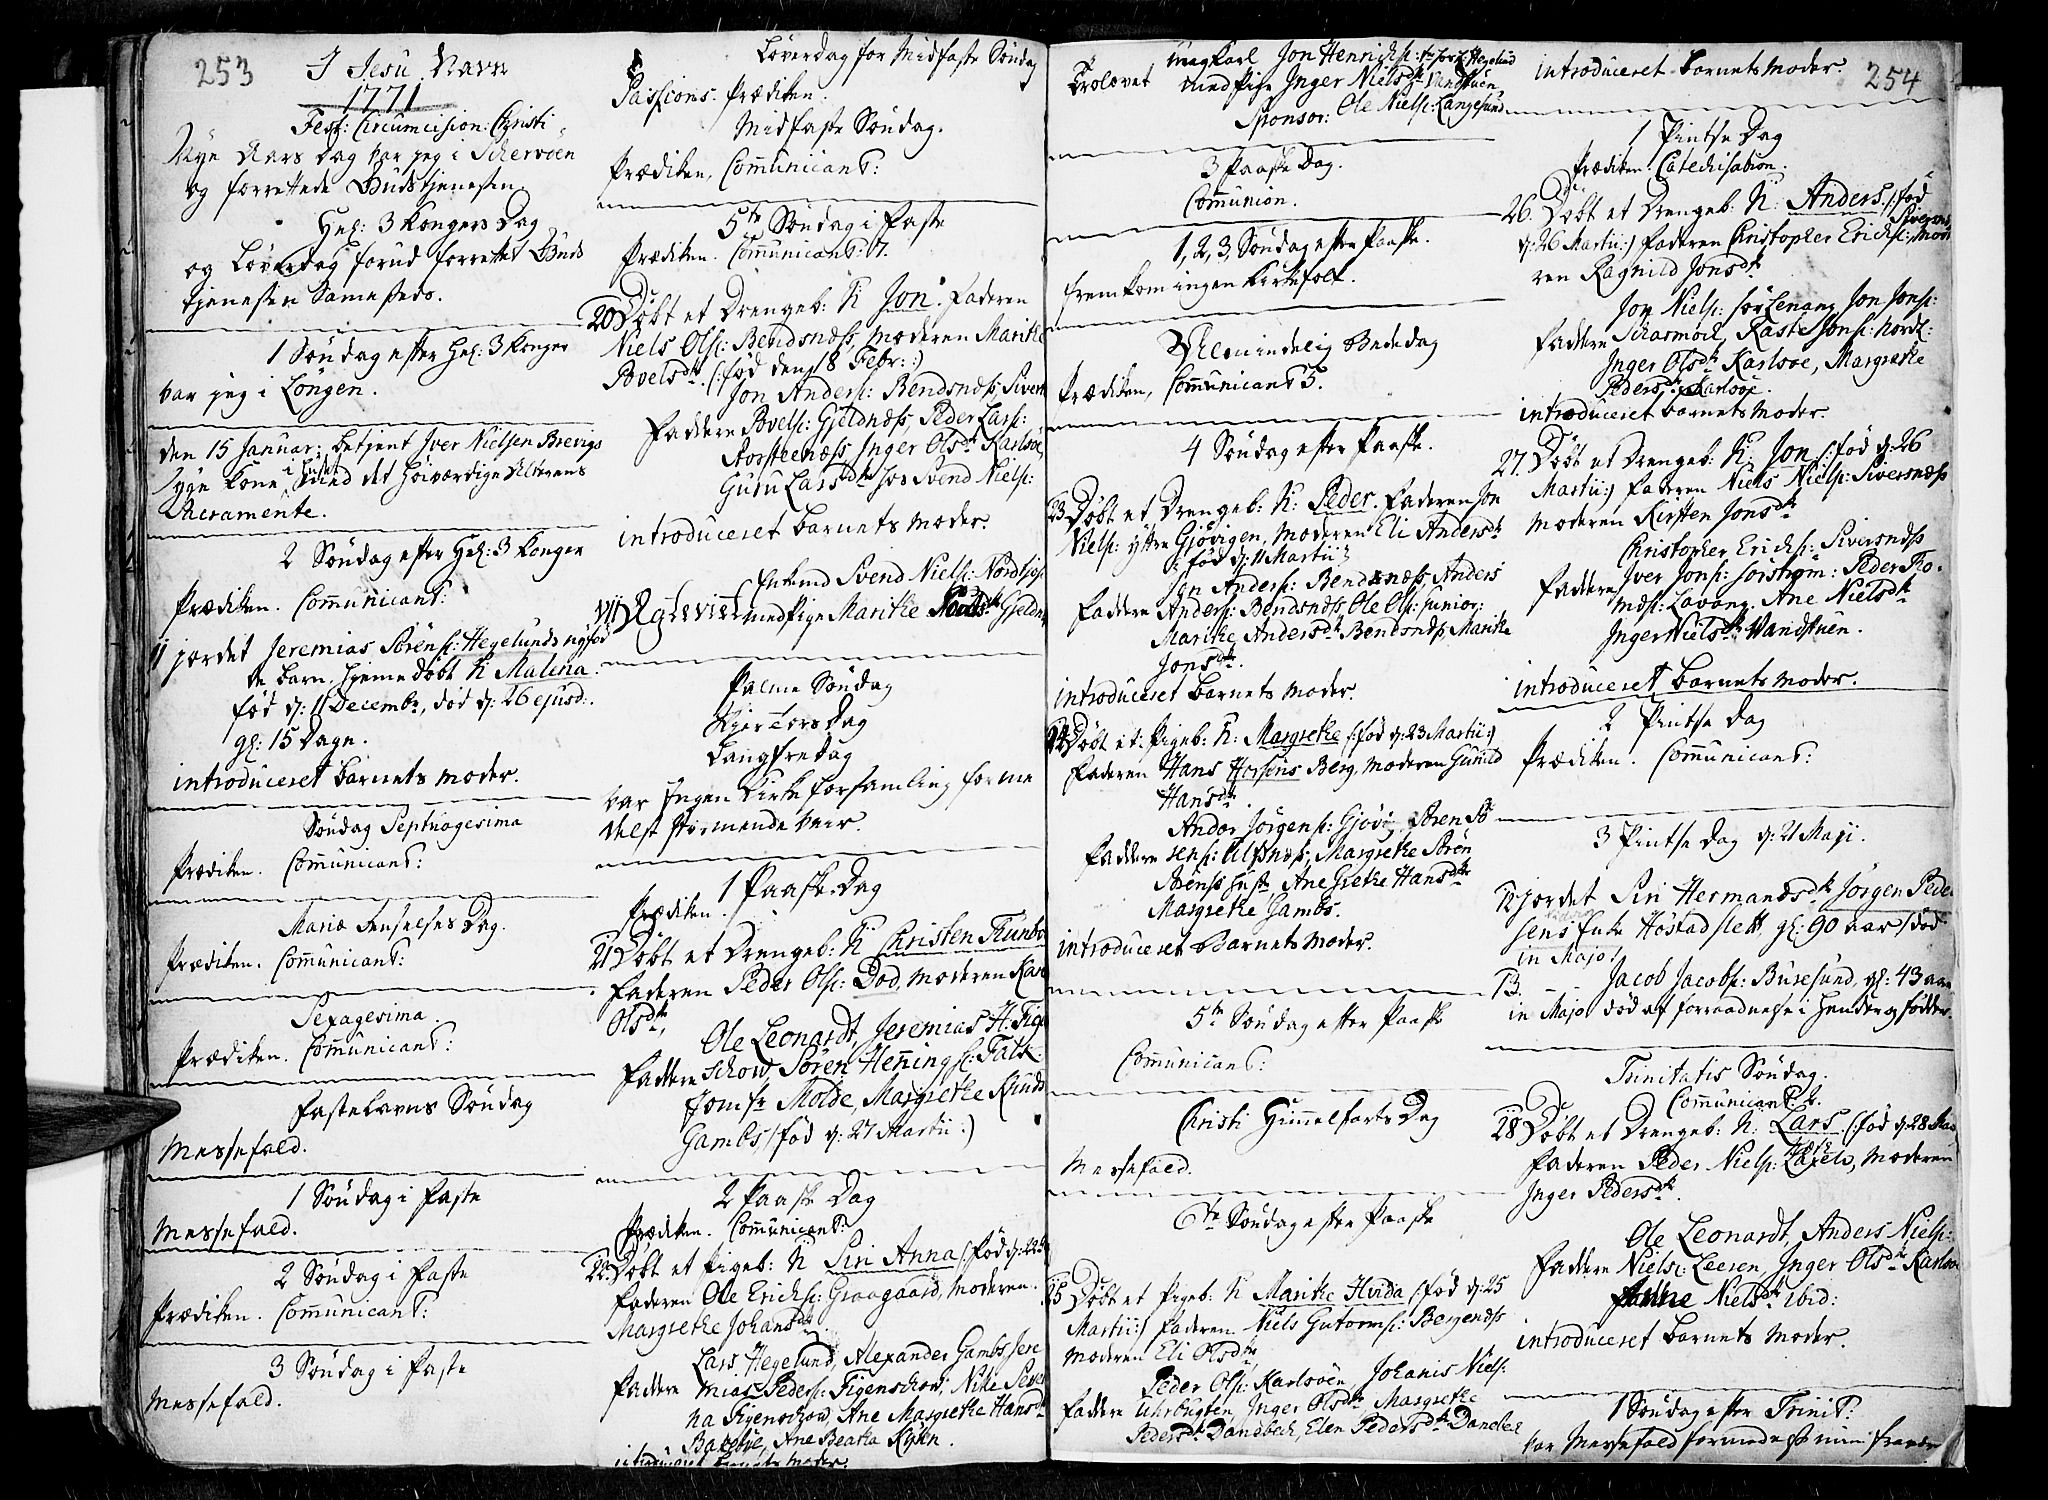 253
I Jesu Navn
1771
Fest: Circumcision: Christi
Nye Aars Dag var jeg i Schervøen
og forrettede Gudstjenesten
Hel: 3 Kongers Dag
og Løverdag forud forrettet Guds
tjenesten samesteds.
1 Søndag efter Hel: 3 Konger
var jeg i Lÿngen.
den 15 Januar: betjent Iver Nielsen Brevigs
syge Kone i huset med det høiværdige Alterens
Sacramente.
2 Søndag efter Hel: 3 Konger
Prædiken. Communicant:
11 jordet Jeremias Sørens: Hegelunds nyfød
te barn, hjemedøbt N Malena
fød d: 11 Decembr, død d: 26 ejusd:
gl: 15 Dage.
introduceret barnets moder.
Søndag Septuagesima
Prædiken. Communicant:
Mariæ Renselses Dag.
Prædiken. Communicant:
Sexagesima.
Prædiken. Communicant:
Fastelavns Søndag
Messefald.
1 Søndag i Faste
Messefald.
2 Søndag i Faste
Prædiken. Communicant:
3 Søndag i Faste
Messefald.
Løverdag for Midfaste Søndag
Passions-Prædiken.
Midfaste Søndag.
Prædiken, Communicant:
5te Søndag i Faste
Prædiken. Communicant: 7.
20 Døbt et Drengeb: N Jon. Faderen
Niels Ols: Bendsnæss, Moderen Marithe
Povelsdr. (: fød den 18 Febr: :)
Jon Anders: Bendsnæs, Sivert
Faddere Povels: Gjeldnæss, Peder Lars:
Storsteenæss, Inger Olsdr Karlsøe,
Guru Larsdr hos Svend Niels:
introduceret barnets moder.
Enkemd Svend Niels: Nordfjo:
VII Egteviet med Pige Marithe Povelsdr Gjeldn
Palme Søndag
Skjertorsdag
Langfredag
var Ingen Kirke forsamling forme
delst stormende veir.
1 Paaske-Dag
Prædiken.
21 Døbt et Drengeb: N Christen Thunbo
Faderen Peder Ols: Dod, Moderen Kar
Olsdr,
Ole Leonardt, Jeremias H: Fige
Faddere schow, Søren Hennings: Falk
Jomfr Molde, Margrethe Knuds
Gambs, (: fød d: 27 Martii :)
2 Paaske Dag
Prædiken. Communicant:
22. Døbt et Pigeb: N Siri Anna (: fød d: 22
Faderen Ole Erichs: Graagaard, Moderen
Margrethe Johansdr
Lars Hegelund, Alexander Gambs, Jere
Faddere mias Peders: Figenschow, Nille Seve
na Figenschow, Ane Margrethe Hansdr
Bakkebye, Ane Beata Kyhn.
introduceret barnets moder.
Trolovet
Ungkarl Jon Henrichs: hos Hegelund
med Pige Inger Nielsdr Vandstuen,
Sponsor: Ole Niels: Langesund
3 Paaske Dag.
Communion.
1, 2, 3, Søndag efter Paaske.
fremkom ingen Kirkefolk.
Almindelig Bededag
Prædiken, Communicant 5.
4 Søndag efter Paaske.
23 Døbt et Drengeb: N: Peder. Faderen Jon
Niels: yttre Gjøvigen, Moderen Eli Andersdr
(: fød d: 11 Martii :)
Jon Anders: Bendsnæss, Anders
Faddere Anders: Bendsnæss, Ole Ols: junior:
Marithe Andersdr Bendsnæss, Marithe
Jonsdr.
introduceret barnets moder.
24 Døbt et Pigeb: N: Margrethe (: fød d: 23 Martii :)
Faderen Hans Horsens Berg, Moderen Gunild
Hansdr.
Andor Jørgens: Gjøvig, Søren Sø
Faddere sens: Ulfsnæss, Margrethe Søren
Sørens hustr Ane Grethe Hansdr
Margrethe Gambs.
introduceret Barnets Moder.
5te Søndag efter Paaske
Communicant:
Christi Himmelfarts Dag
Messefald.
6te Søndag efter Paaske
25 Døbt et Pigeb: N Marithe Hvida (: fød d: 25
Martii :) Faderen Niels Gutorms: Bergendss
Moderen Eli Olsdr,
Peder Ols: Karlsøen, Johanis Niels:
Faddere Uhrbugten, Inger Olsdr Margrethe
Pedersdr Dandbech, Elen Pedersdr Dandbe
introduceret Barnets Moder.
254
1 Pintse Dag
Prædiken. Catechisation.
26. Døbt et Drengeb: N: Anders (: fød
d: 26 Martii :) Faderen Christopher Erichs: Siversnss, Mode
ren Ragnild Jonsdr
Jon Niels: Sørlenang, Jon Jons:
Faddere Scharmoch, Raste Jons: Nordl:
Inger Olsdr Karlsøe, Margrethe
Pedersdr Karlsøe.
introduceret barnets Moder.
27. Døbt et Drengeb: N: Jon (: fød d: 26
Martii :) Faderen Niels Niels: Siversnæss
Moderen Kirsten Jonsdr
Christopher Erichs: Siversndss
Faddere Iver Jons: Sørstrøm: Peder Tho-
mæs: Lavang. Ane Nielsdr
Inger Nielsdr Vandstuen.
introduceret Barnets Moder.
2 Pintse Dag
Prædiken. Communicant:
3 Pintse Dag d: 21 Maji.
12 jordet Siri Hermandsdr Jørgen Peder
sens Enke Høstadslett, gl: 90 aar (: død
in Majo :)
13. - - Jacob Jacobs: Buresund, gl: 43 aar
in Majo død af forraadnelse i Hender og Fødder.
Trinitatis Søndag.
Communicant: 2.
28 Døbt et Drengeb: N: Lars (: fød d: 28 Mar
Faderen Peder Niels: , Moderen
Inger Pedersdr.
Ole Leonardt, Anders Niels:
Faddere Niels: Leesen, Inger Olsdr Karlsøe
Nielsdr ibid:
introduceret barnets Moder.
1 Søndag efter Trinit:
var Messefald formedelst min